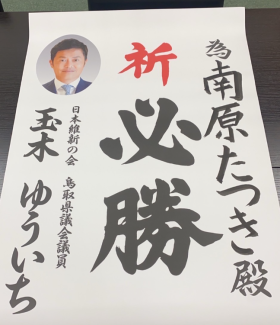 為 南原たつき殿
祈
必勝
日本維新の会 鳥取県議会議員
玉木 ゆういち